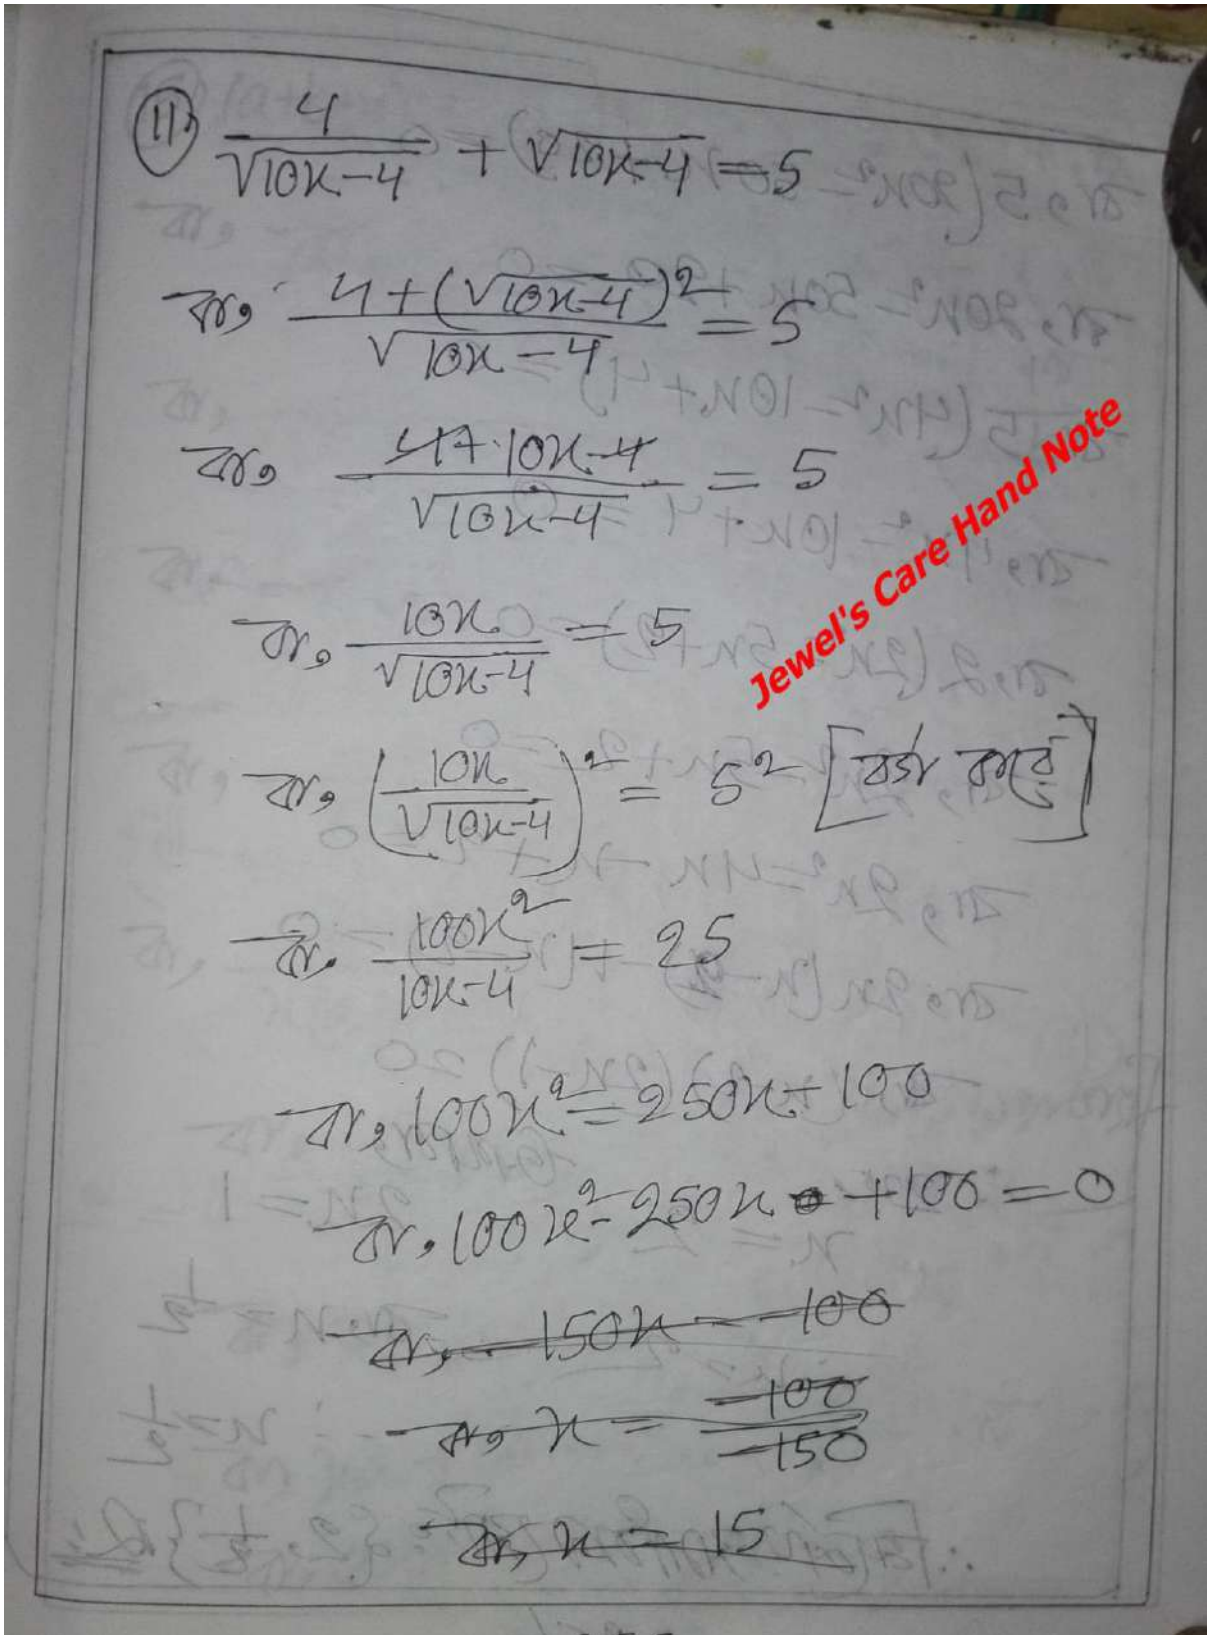 11) 4/√10x-4 + √10x-4 = 5
বা, 4+(√10x-4)²/√10x-4 = 5
বা, 4+10x-4/√10x-4 = 5
Jewel's Care Hand Note
বা, 10x/√10x-4 = 5
বা, (10x/√10x-4)² = 5² [বর্গ করে]
বা, 100x²/10x-4 = 25
বা, 100x² = 250x-100
বা, 100x²-250x +100 = 0
বা, -150x = -100
বা, x = -100/-150
বা, x = 15